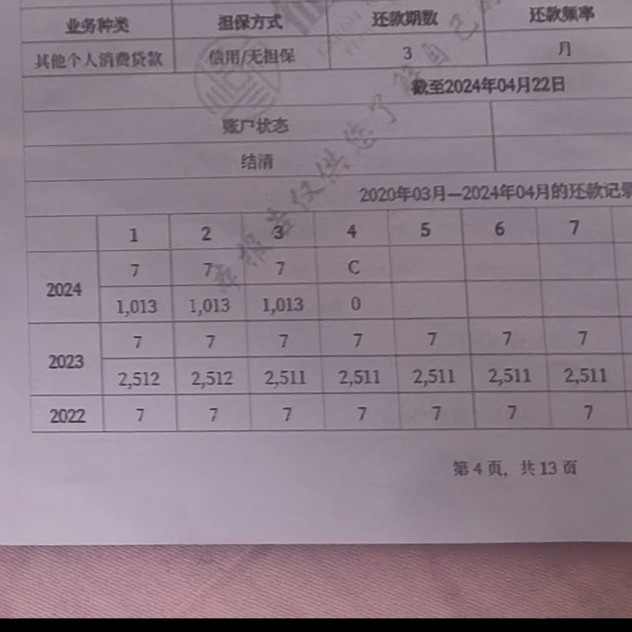 业务种类 担保方式 还款期数 还款频率
其他个人消费贷款 信用/无担保 3 月
截至2024年04月22日
账户状态
结清
2020年03月—2024年04月的还款记录
1 2 3 4 5 6 7
2024 7 7 7 C
1,013 1,013 1,013 0
2023 7 7 7 7 7 7 7
2,512 2,512 2,511 2,511 2,511 2,511 2,511
2022 7 7 7 7 7 7 7
第 4 页，共 13 页